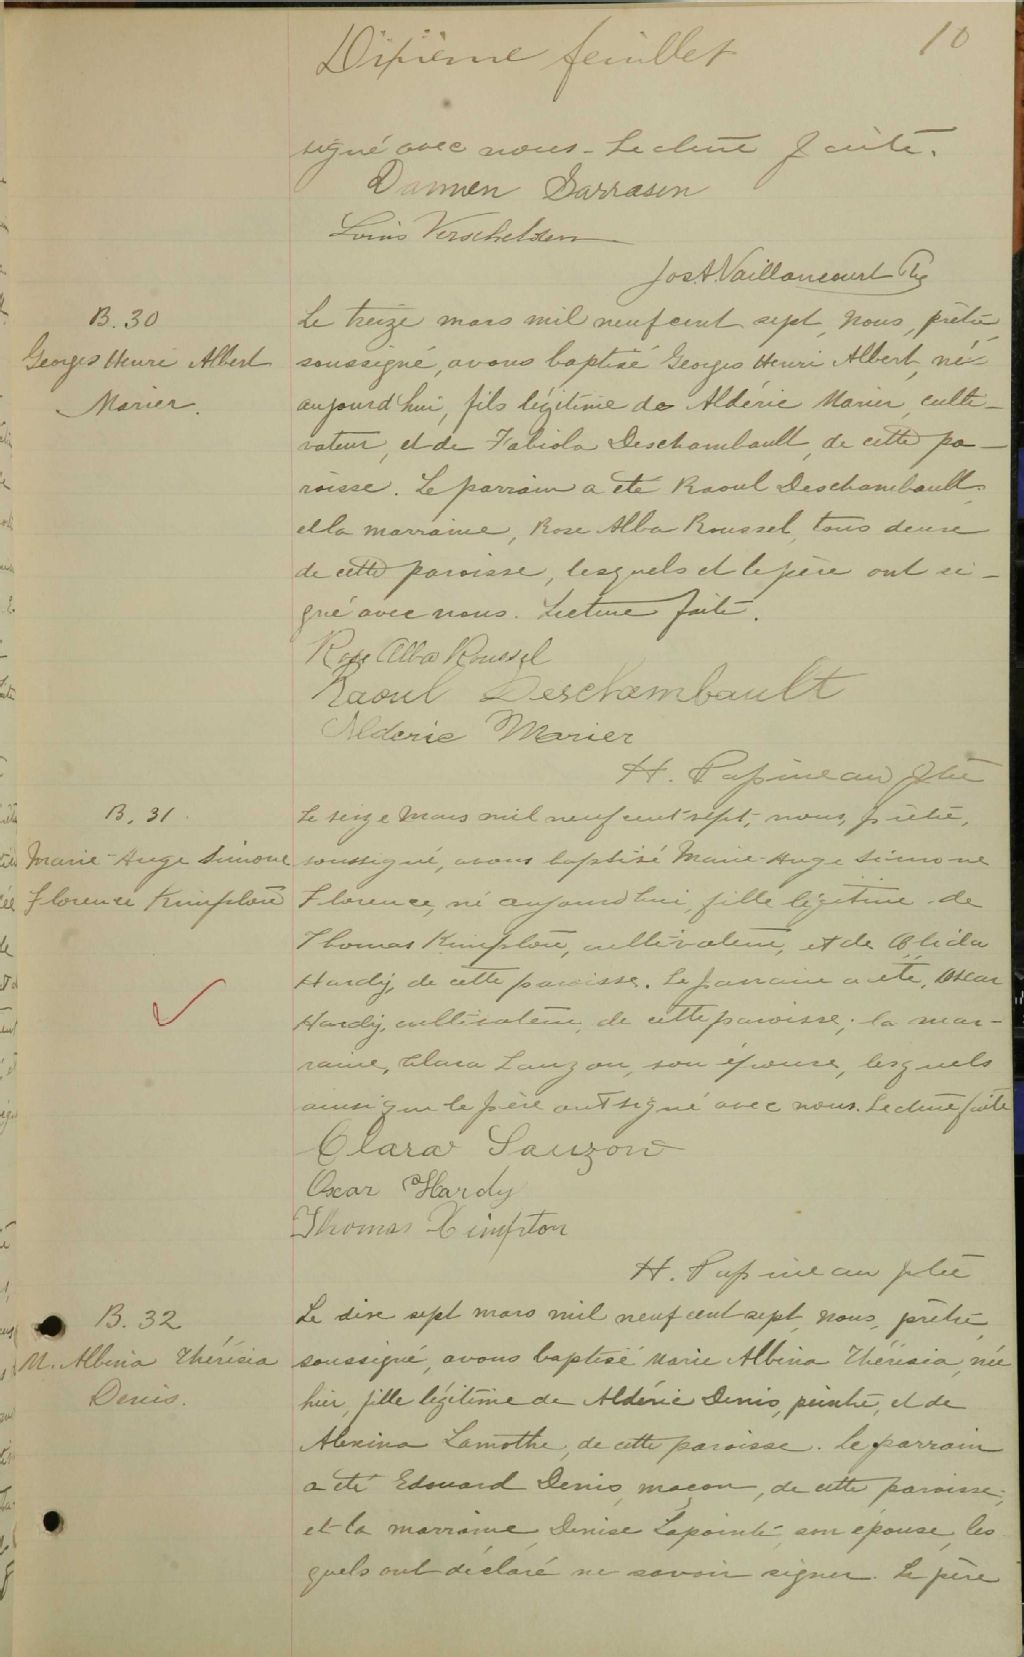 10
Dixième feuillet
signé avec nous. Lecture faite.
Damien Sarrasin
Louis Verschelden
Jos A. Vaillancourt Ptre
B. 30
Georges Henri Albert
Marier.
Le treize mars mil neuf cent sept, nous, prêtre
soussigné, avons baptisé Georges Henri Albert, né
aujourd'hui, fils légitime de Aldéric Marier, culti-
vateur, et de Fabiola Deschambault, de cette pa-
roisse. Le parrain a été Raoul Deschambault
et la marraine, Rose Alba Roussel, tous deux
de cette paroisse, lesquels et le père ont si-
gné avec nous. Lecture faite.
Rose Alba Roussel
Raoul Deschambault
Alderic Marier
H. Papineau ptre
B. 31.
Marie-Ange Simone
Florence Kimpton
Le seize Mars mil neuf cent sept, nous, prêtre,
soussigné, avons baptisé Marie-Ange Simone
Florence, né aujourd'hui, fille légitime de
Thomas Kimpton, cultivateur, et de Olida
Hardy, de cette paroisse. Le parrain a été, Oscar
Hardy, cultivateur, de cette paroisse; la mar-
raine, Clara Lauzon, son épouse, lesquels
ainsi que le père ont signé avec nous. Lecture faite
Clara Lauzon
Oscar Hardy
Thomas Kimpton
H. Papineau ptre
B. 32
M. Albina Thérésia
Denis.
Le dix sept mars mil neuf cent sept, nous, prêtre,
soussigné, avons baptisé Marie Albina Thérésia, née
hier, fille légitime de Aldéric Denis, peintre, et de
Alexina Lamothe, de cette paroisse. Le parrain
a été Edouard Denis, maçon, de cette paroisse;
et la marraine, Denise Lapointe, son épouse, les
quels ont déclaré ne savoir signer. Le père